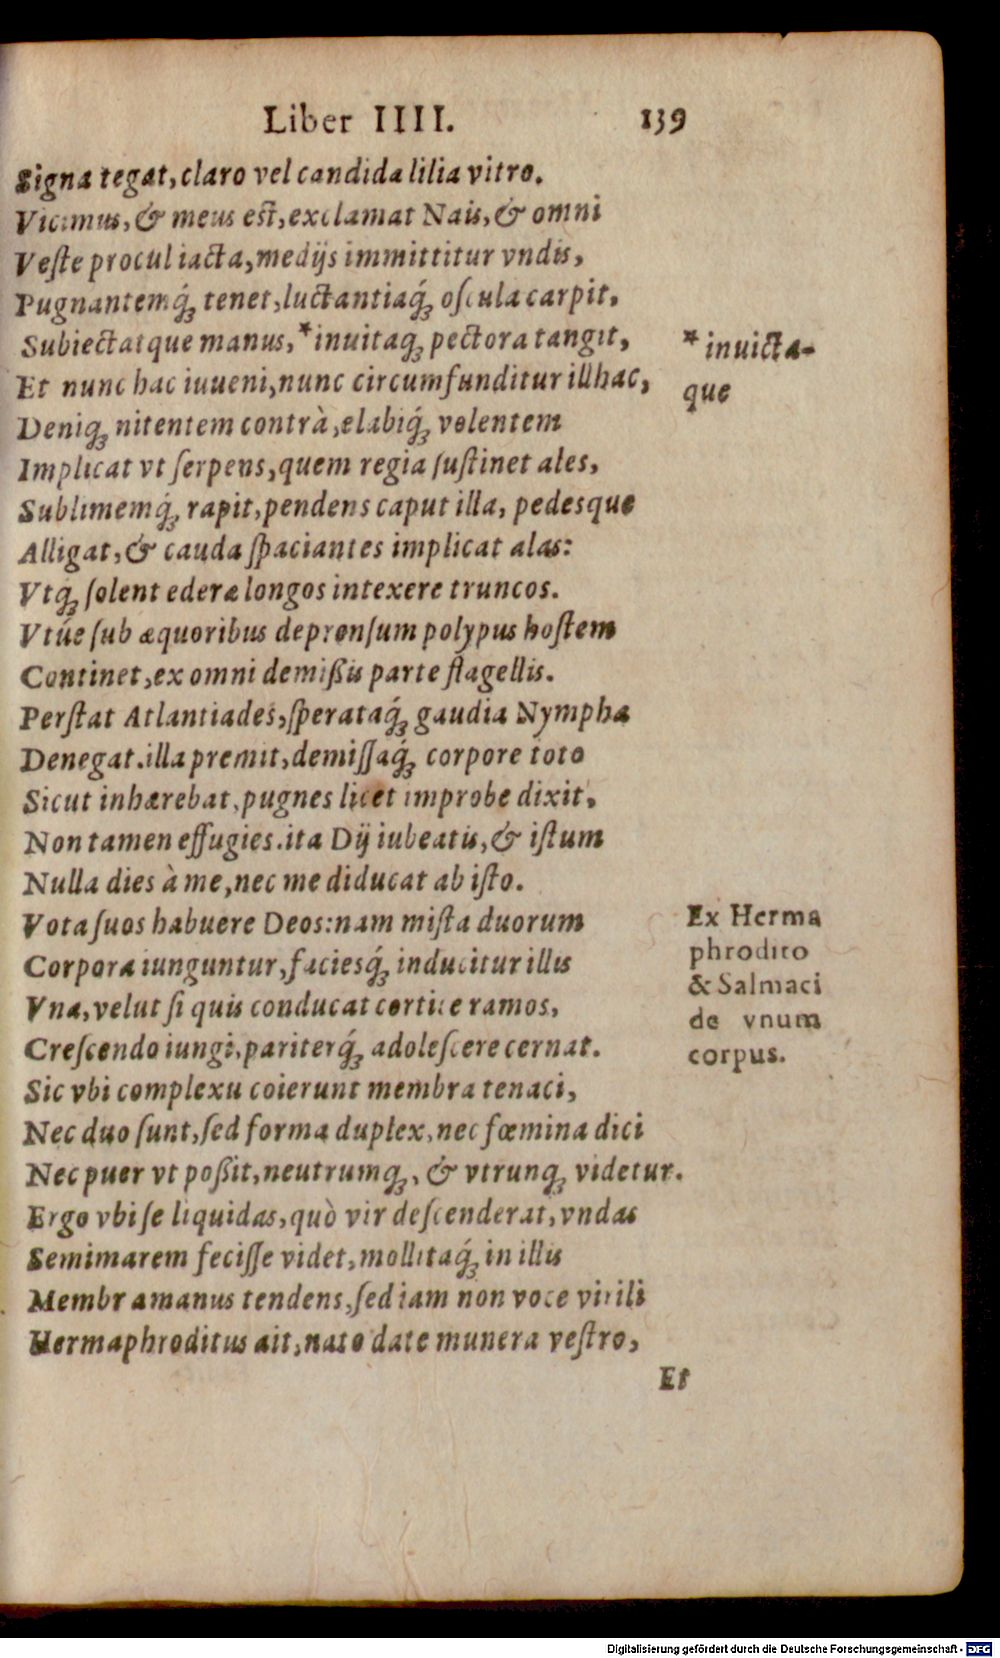 Liber IIII. 139
Signa tegat, claro vel candida lilia vitro.
Vicimus, & meus est, exclamat Nais, & omni
Veſte procul iacta, medijs immittitur vndis,
Pugnantemq́ꝫ tenet, luctantiaq́ꝫ oſcula carpit,
Subiectatque manus, *inuitaqꝫ pectora tangit,
*inuicta-
Et nunc hac iuueni, nunc circumfunditur illhac,
que
Deniqꝫ nitentem contrà, elabiq́ꝫ volentem
Implicat vt ſerpens, quem regia ſuſtinet ales,
Sublimemq́ꝫ rapit, pendens caput illa, pedesque
Alligat, & cauda ſpaciantes implicat alas:
Vtqꝫ ſolent ederæ longos intexere truncos.
Vtúe ſub æquoribus deprenſum polypus hoſtem
Continet, ex omni demißis parte flagellis.
Perſtat Atlantiades, ſperataq́ꝫ gaudia Nympha
Denegat. illa premit, demiſſaq́ꝫ corpore toto
Sicut inhærebat, pugnes licet improbe dixit,
Non tamen effugies. ita Dij iubeatis, & iſtum
Nulla dies à me, nec me diducat ab iſto.
Vota ſuos habuere Deos: nam miſta duorum
Ex Herma
Corpora iunguntur, faciesq́ꝫ inducitur illis
phrodito
& Salmaci
Vna, velut ſi quis conducat cortice ramos,
de vnum
Creſcendo iungi, pariterq́ꝫ adoleſcere cernat.
corpus.
Sic vbi complexu coierunt membra tenaci,
Nec duo ſunt, ſed forma duplex, nec fœmina dici
Nec puer vt poßit, neutrumqꝫ, & vtrunqꝫ videtur.
Ergo vbi ſe liquidas, quò vir deſcenderat, vndas
Semimarem feciſſe videt, mollitaq́ꝫ in illis
Membra manus tendens, ſed iam non voce virili
Hermaphroditus ait, nato date munera veſtro,
Et
Digitalisierung gefördert durch die Deutsche Forschungsgemeinschaft - DFG